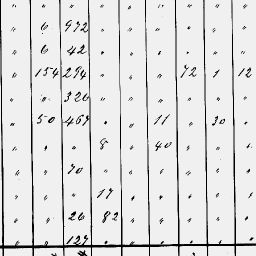 " 6 972 " " " " " "
" 6 42 " " " " " "
" 154 294 " " " 72 1 12
" " 326 " " " " " "
" 50 467 " " 11 " 30 "
" " " 8 " 40 " " "
" " 70 " " " " " "
" " " 17 " " " " "
" " 26 82 " " " " "
" " 127 " " " " " "